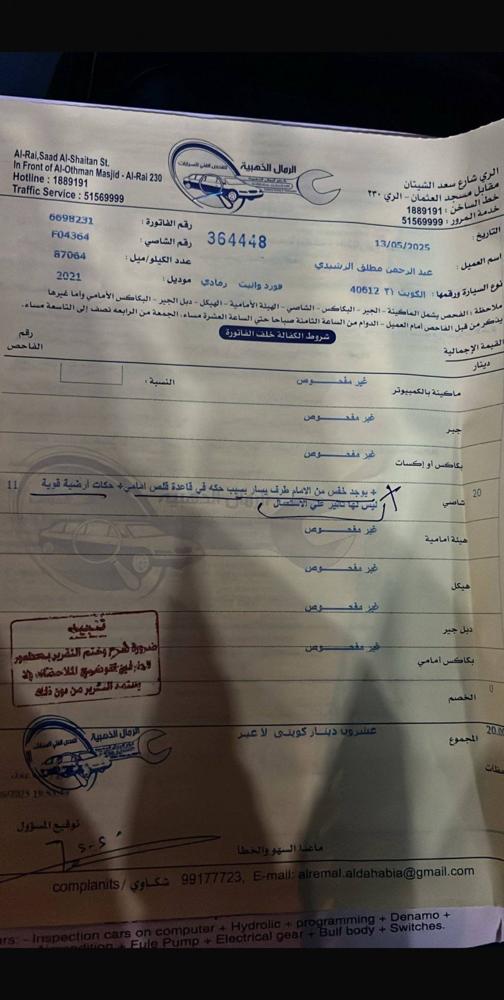 Al-Rai,Saad Al-Shaitan St.
In Front of Al-Othman Masjid - Al-Rai 230
Hotline : 1889191
Traffic Service : 51569999
الرمال الذهبية
للفحص الفني للسيارات
الري شارع سعد الشيتان
مقابل مسجد العثمان - الري ٢٣٠
خط الساخن : 1889191
خدمة المرور : 51569999
التاريخ : 13/05/2025
364448
رقم الفاتورة : 6698231
اسم العميل : عبد الرحمن مطلق الرشيدي
رقم الشاصي : F04364
نوع السيارة ورقمها : الكويت ٢١ 40612 فورد وانيت رمادي
عدد الكيلو/ميل : 87064
موديل : 2021
ملاحظة : الفحص يشمل الماكينة - الجير - البكاكس - الشاصي - الهيئة الأمامية - الهيكل - دبل الجير - البكاكس الأمامي وما غيرها
يذكر من قبل الفاحص امام العميل - الدوام من الساعة الثامنة صباحا حتى الساعة العشرة مساء. الجمعة من الرابعه نصف إلى التاسعة مساء.
شروط الكفالة خلف الفاتورة
القيمة الإجمالية
دينار
رقم
الفاحص
ماكينة بالكمبيوتر غير مفحوص النسبة :
جير غير مفحوص
بكاكس أو إكسات غير مفحوص
20 شاصي + يوجد خفس من الامام طرف يسار بسبب حكه في قاعدة قلص امامي + حكات ارضية قوية 11
ليس لها تاثير على الاستعمال
هيئة امامية غير مفحوص
هيكل غير مفحوص
دبل جير غير مفحوص
بكاكس أمامي غير مفحوص
0 الخصم
تنبيه
ضرورة شرح وختم التقرير بحضور
يعتمد التقرير من دون ذلك
20.00 المجموع عشرون دينار كويتى لا غير
الرمال الذهبية
للفحص الفني للسيارات
توقيع المسؤول
ماعدا السهو والخطأ
complanits / شكاوي 99177723, E-mail: alremal.aldahabia@gmail.com
ars: - Inspection cars on computer + Hydrolic + programming + Denamo +
+ Fule Pump + Electrical gear + Bulf body + Switches.